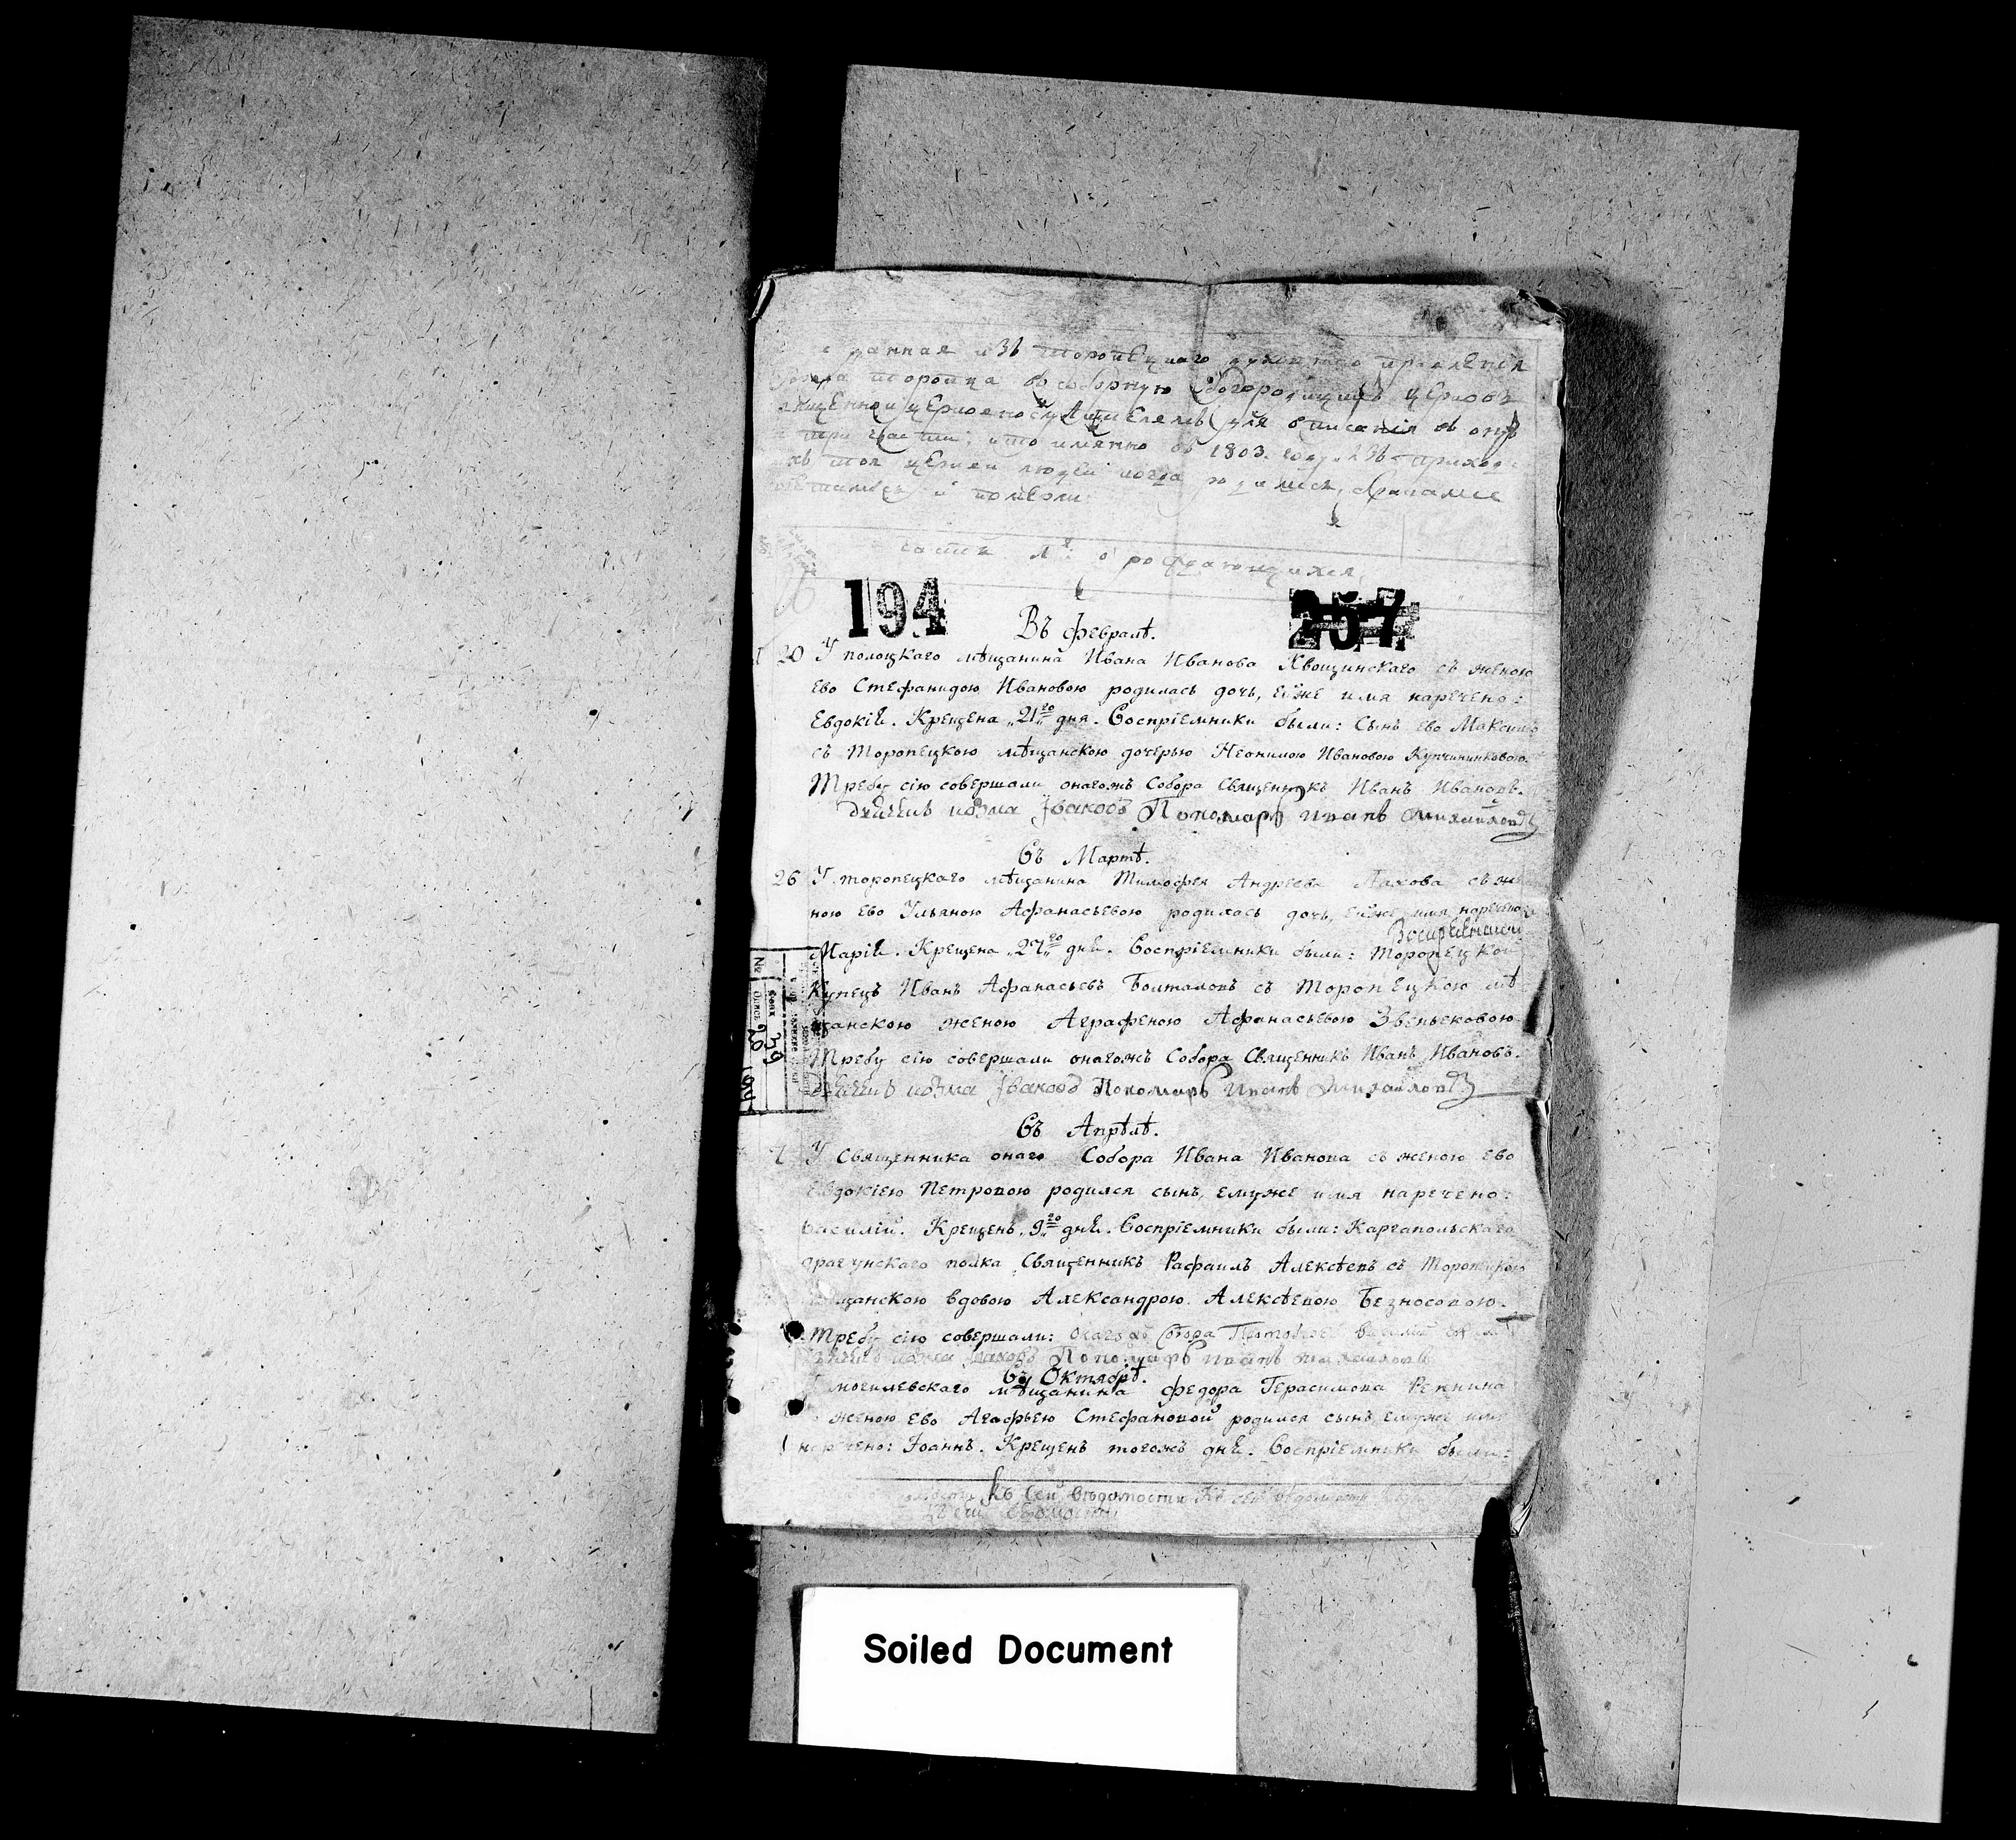 данная изъ торопецкаго духовнаго правленія
города торопца въ соборную Богородицкую церковь
священно и церковнослужителемъ для вписанія въ оную
три части; кто имянно въ 1803. году изъ приход
тоя церкви людей когда родились, бракамъ
и померли:
часть 1я о рождающихся
194 257
Въ Февралѣ.
1 20 У полоцкаго мѣщанина Ивана Иванова Хвощинскаго съ женою
ево Стефанидою Ивановою родилась дочь, ейже имя наречено:
Евдокіѣ. Крещена „21го„ дня. Воспріемники были: Сынъ ево Максимъ
съ Торопецкою мѣщанскою дочерью Неонилою Ивановою
Требу сію совершали онагожъ Собора Священникъ Иванъ Ивановъ.
дьячекъ козма Іваковъ Пономарь иванъ михайловъ
Въ Мартѣ.
26 У торопецкаго мѣщанина Тимофея Андреева Лахова съ же
ною ево Ульяною Афанасьевою родилась дочь, ейже имя наречено
Маріѣ. Крещена „27го„ днѣ. Воспріемники были: Торопецкой
Купецъ Иванъ Афанасьевъ Болталовъ съ Торопецкою мѣ
щанскою женою Аграфеною Афанасьевою Звеньековою
Требу сію совершали онагожъ Собора Священникъ Иванъ Ивановъ.
дьячекъ козма Іваковъ Пономарь иванъ михайловъ
Въ Апрѣлѣ.
У Священника онаго Собора Ивана Иванова съ женою ево
Евдокіею Петровою родился сынъ, емуже имя наречено:
Василій. Крещенъ „9го„ днѣ. Воспріемники были: Каргапольскаго
драгунскаго полка Священникъ Рафаилъ Алексѣевъ съ Торопецкою
мѣщанскою вдовою Александрою Алексѣевою Безносовою.
Требу сію совершали: онагожъ Собора Протоіерей Василій
дьячекъ козма Іваковъ Пономарь иванъ михайловъ
Въ Октябрѣ.
У могилевскаго мѣщанина Федора Герасимова Репнина
женою ево Агафьею Стефановой родился сынъ, емуже имя
наречено: Іоаннъ. Крещенъ тогожъ днѣ. Воспріемники были:
къ сей вѣдомости Къ сей вѣдомости
Къ сей вѣдомости
№
Фонд 39
Опись 20
194
Soiled Document